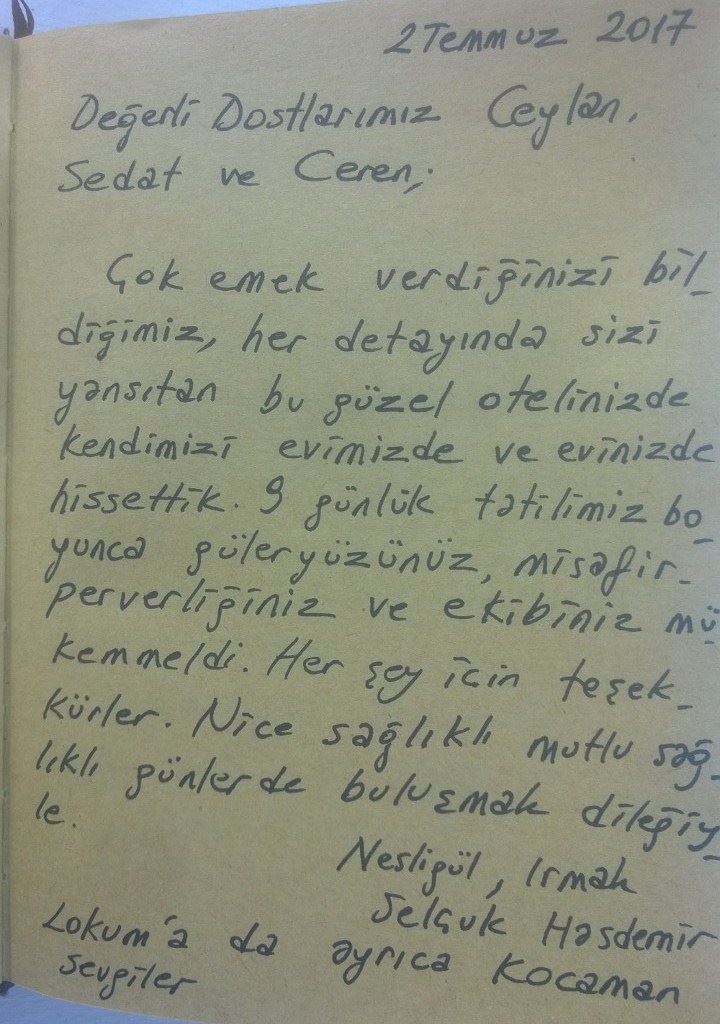 2 Temmuz 2017
Değerli Dostlarımız Ceylan,
Sedat ve Ceren;
Çok emek verdiğinizi bil_
diğimiz, her detayında sizi
yansıtan bu güzel otelinizde
kendimizi evimizde ve evinizde
hissettik. 9 günlük tatilimiz bo_
yunca güleryüzünüz, misafir_
perverliğiniz ve ekibiniz mü
kemmeldi. Her şey için teşek_
kürler. Nice sağlıklı mutlu sağ_
lıklı günlerde buluşmak dileğiy_
le.
Nesligül, Irmak
Selçuk Hasdemir
Lokum'a da ayrıca Kocaman
sevgiler